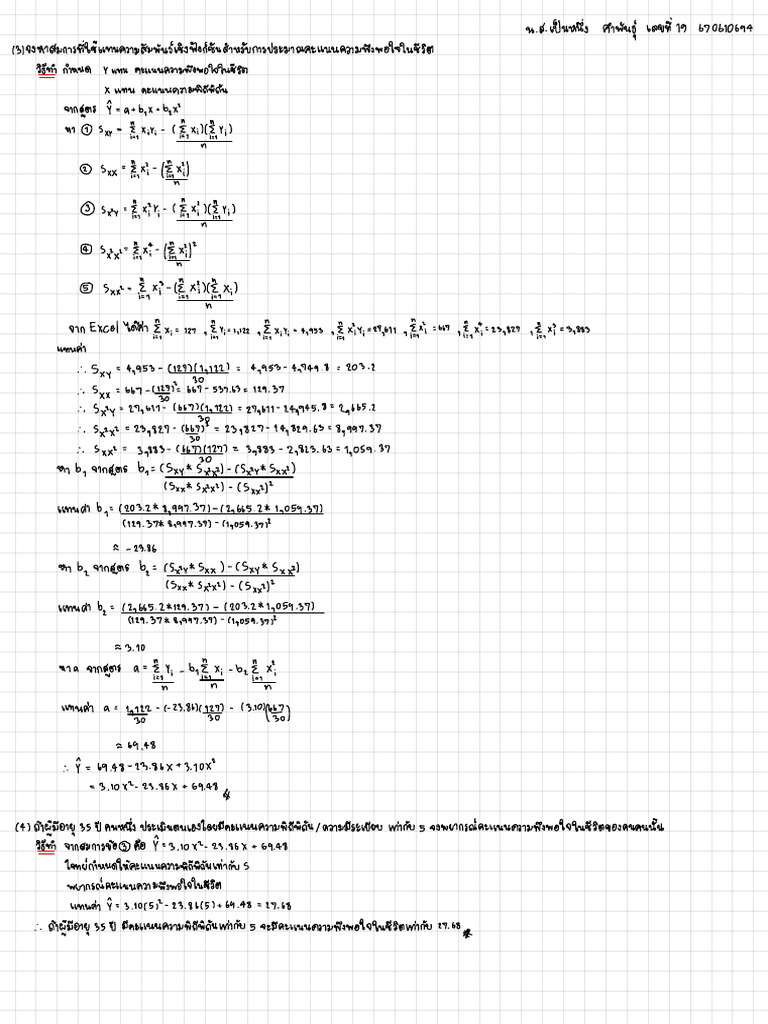 น.ส.เป็นหนึ่ง คำพันธุ์ เลขที่ 19 670610694
(3) จงหาสมการที่ใช้แทนความสัมพันธ์เชิงฟังก์ชันสำหรับการประมาณคะแนนความพึงพอใจในชีวิต
วิธีทำ กำหนด Y แทน คะแนนความพึงพอใจในชีวิต
X แทน คะแนนความพิถีพิถัน
จากสูตร Ŷ = a + b₁X + b₂X²
หา ① S_XY = Σ(i=1→n) XᵢYᵢ - (Σ(i=1→n) Xᵢ)(Σ(i=1→n) Yᵢ)/n
② S_XX = Σ(i=1→n) Xᵢ² - (Σ(i=1→n) Xᵢ²)/n
③ S_X²Y = Σ(i=1→n) Xᵢ²Yᵢ - (Σ(i=1→n) Xᵢ²)(Σ(i=1→n) Yᵢ)/n
④ S_X²X² = Σ(i=1→n) Xᵢ⁴ - (Σ(i=1→n) Xᵢ²)²/n
⑤ S_XX² = Σ(i=1→n) Xᵢ³ - (Σ(i=1→n) Xᵢ²)(Σ(i=1→n) Xᵢ)/n
จาก Excel ได้ค่า Σ(i=1→n) Xᵢ = 127 , Σ(i=1→n) Yᵢ = 1,122 , Σ(i=1→n) XᵢYᵢ = 4,953 , Σ(i=1→n) Xᵢ²Yᵢ = 27,611 , Σ(i=1→n) Xᵢ² = 667 , Σ(i=1→n) Xᵢ⁴ = 23,827 , Σ(i=1→n) Xᵢ³ = 3,883
แทนค่า
∴ S_XY = 4,953 - (127)(1,122)/30 = 4,953 - 4,749.8 = 203.2
∴ S_XX = 667 - (127)²/30 = 667 - 537.63 = 129.37
∴ S_X²Y = 27,611 - (667)(1,122)/30 = 27,611 - 24,945.8 = 2,665.2
∴ S_X²X² = 23,827 - (667)²/30 = 23,827 - 14,829.63 = 8,997.37
∴ S_XX² = 3,883 - (667)(127)/30 = 3,883 - 2,823.63 = 1,059.37
หา b₁ จากสูตร b₁ = (S_XY * S_X²X²) - (S_X²Y * S_XX²) / (S_XX * S_X²X²) - (S_XX²)²
แทนค่า b₁ = (203.2 * 8,997.37) - (2,665.2 * 1,059.37) / (129.37 * 8,997.37) - (1,059.37)²
≈ -23.86
หา b₂ จากสูตร b₂ = (S_X²Y * S_XX) - (S_XY * S_XX²) / (S_XX * S_X²X²) - (S_XX²)²
แทนค่า b₂ = (2,665.2 * 129.37) - (203.2 * 1,059.37) / (129.37 * 8,997.37) - (1,059.37)²
≈ 3.10
หา a จากสูตร a = Σ(i=1→n) Yᵢ/n - b₁ Σ(i=1→n) Xᵢ/n - b₂ Σ(i=1→n) Xᵢ²/n
แทนค่า a = 1,122/30 - (-23.86)(127)/30 - (3.10)(667/30)
≈ 69.48
∴ Ŷ = 69.48 - 23.86X + 3.10X²
= 3.10X² - 23.86X + 69.48
(4) ถ้าผู้มีอายุ 35 ปี คนหนึ่ง ประเมินตนเองโดยมีคะแนนความพิถีพิถัน/ความมีระเบียบ เท่ากับ 5 จงพยากรณ์คะแนนความพึงพอใจในชีวิตของคนคนนั้น
วิธีทำ จากสมการข้อ ③ คือ Ŷ = 3.10X² - 23.86X + 69.48
โจทย์กำหนดให้คะแนนความพิถีพิถันเท่ากับ 5
พยากรณ์คะแนนความพึงพอใจในชีวิต
แทนค่า Ŷ = 3.10(5)² - 23.86(5) + 69.48 = 27.68
∴ ถ้าผู้มีอายุ 35 ปี มีคะแนนความพิถีพิถันเท่ากับ 5 จะมีคะแนนความพึงพอใจในชีวิตเท่ากับ 27.68